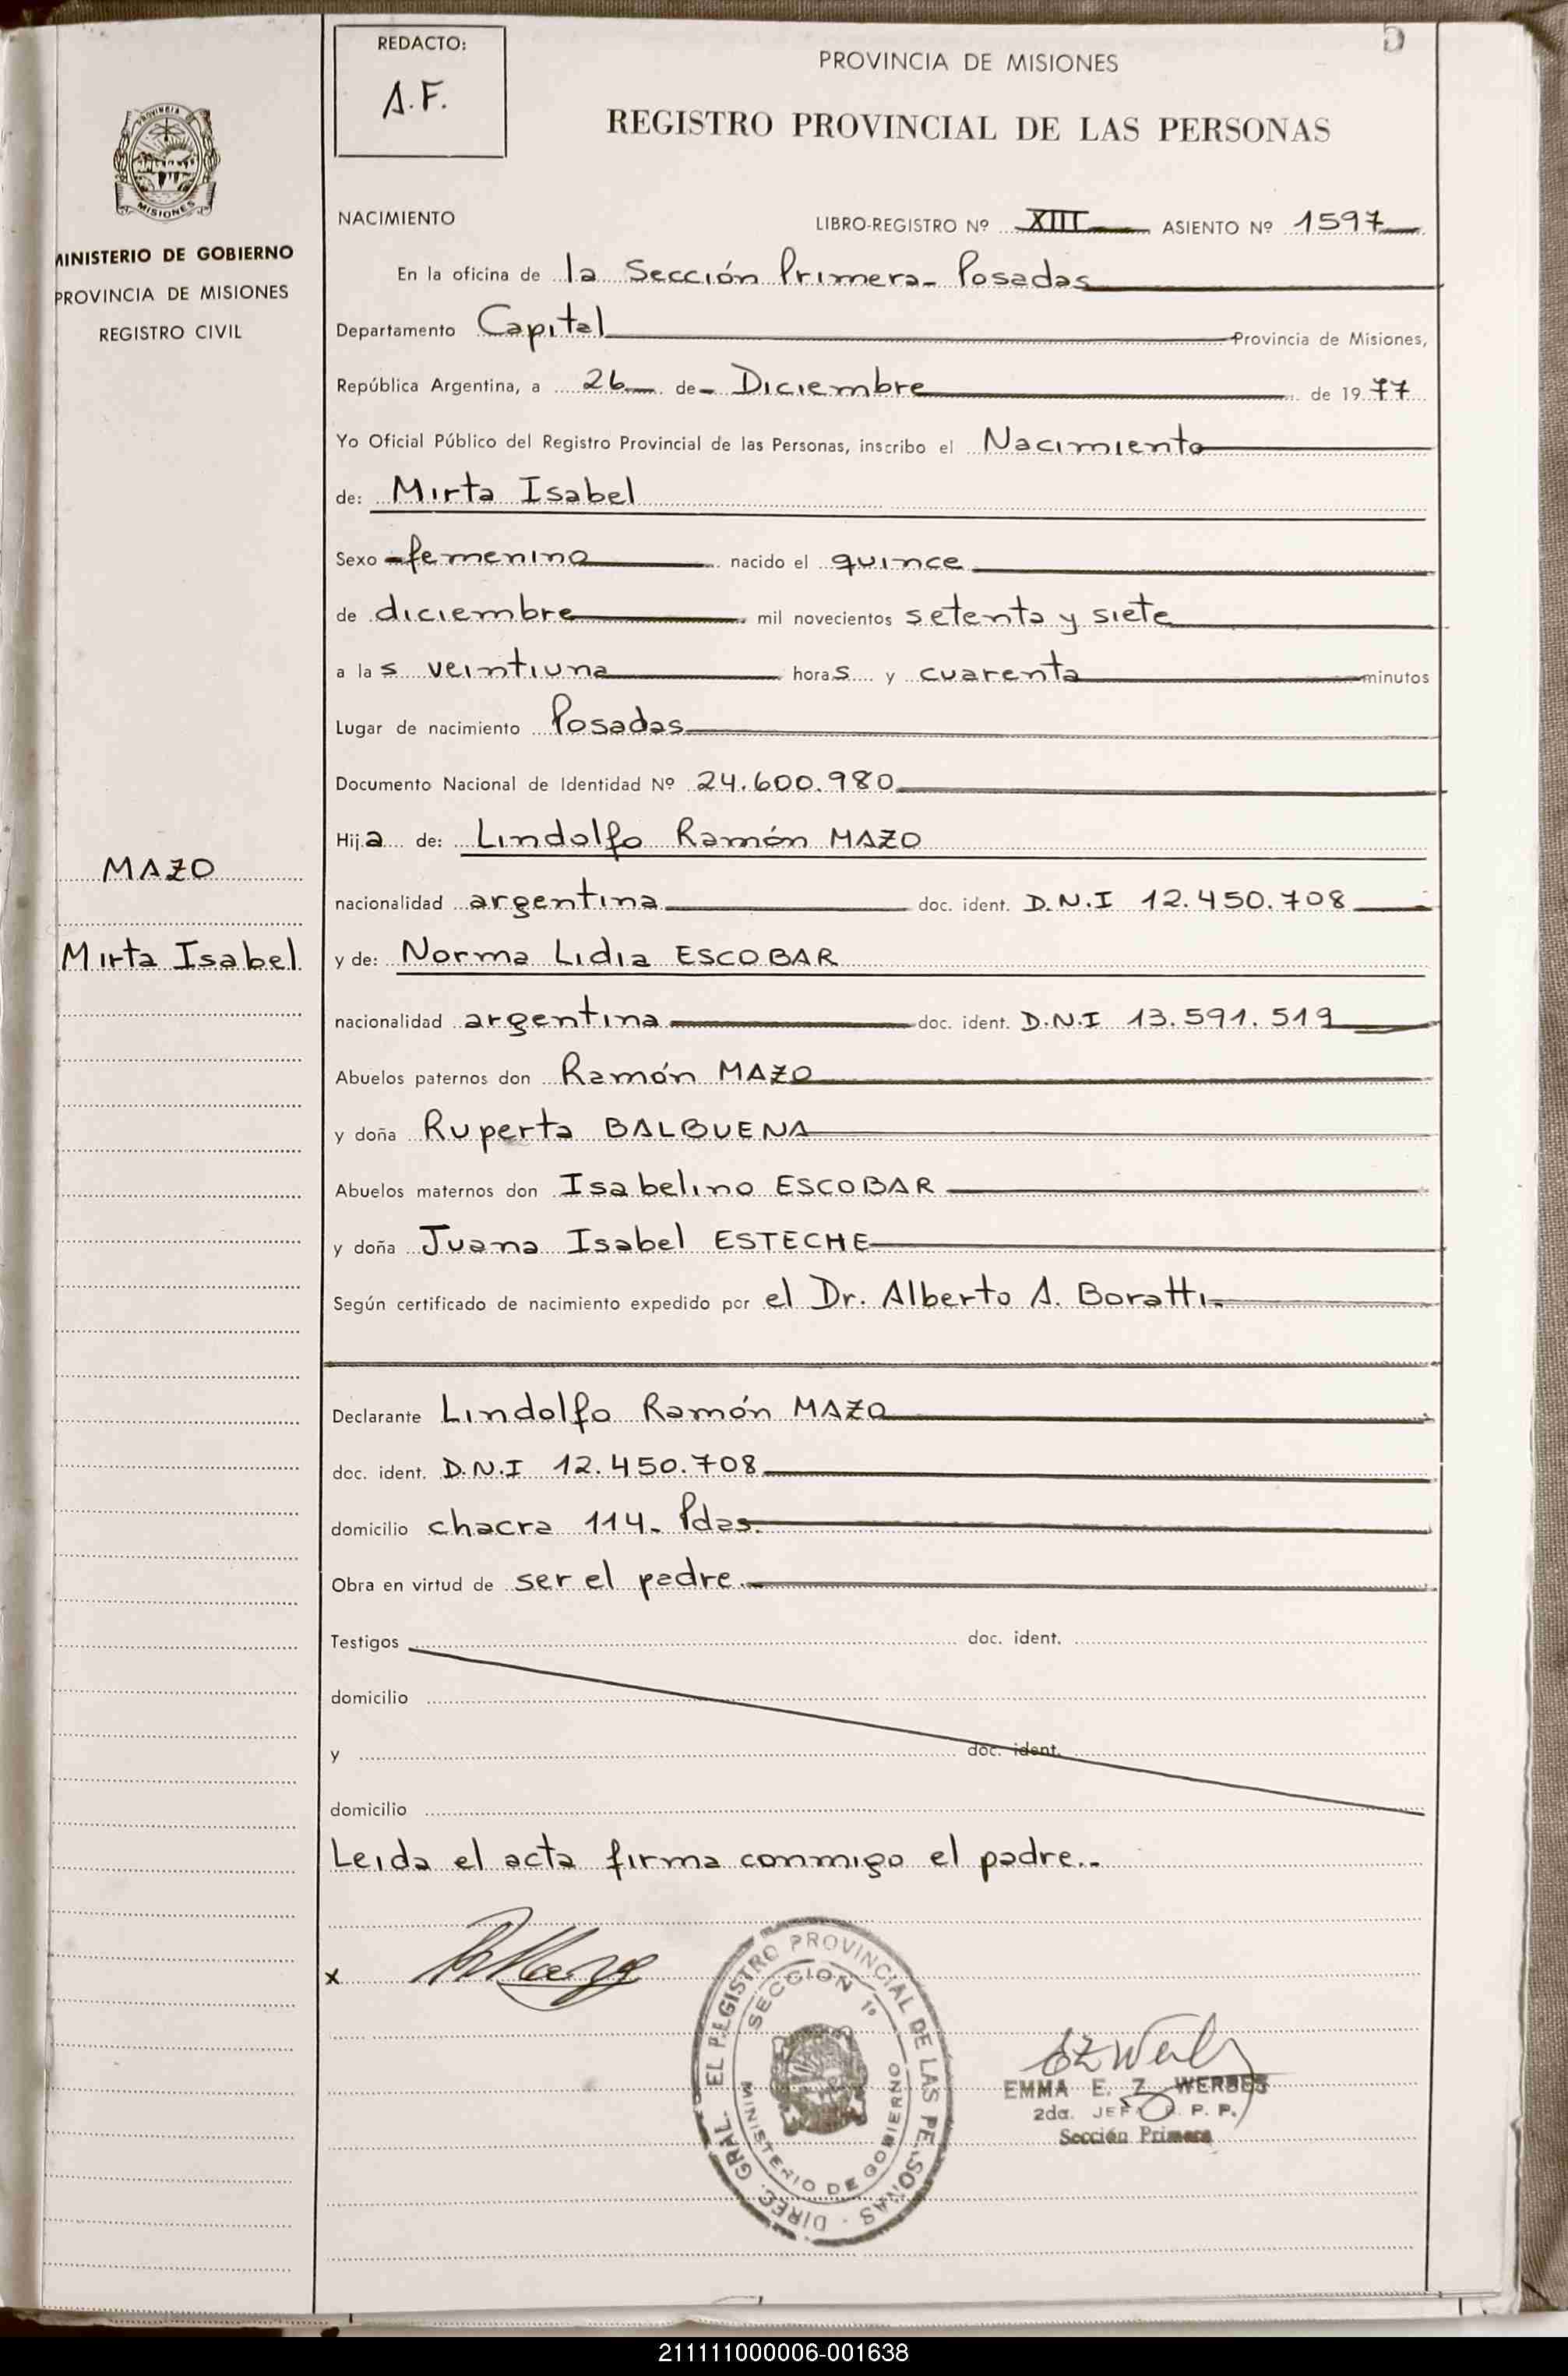 5
REDACTO:
A.F.
PROVINCIA DE MISIONES
REGISTRO PROVINCIAL DE LAS PERSONAS
PROVINCIA DE
MISIONES
MINISTERIO DE GOBIERNO
PROVINCIA DE MISIONES
REGISTRO CIVIL
NACIMIENTO LIBRO-REGISTRO Nº XIII ASIENTO Nº 1597
En la oficina de la Sección Primera - Posadas
Departamento Capital Provincia de Misiones,
República Argentina, a 26 de Diciembre de 1977
Yo Oficial Público del Registro Provincial de las Personas, inscribo el Nacimiento
de: Mirta Isabel
Sexo femenino nacido el quince
de diciembre mil novecientos setenta y siete
a las veintiuna horas y cuarenta minutos
Lugar de nacimiento Posadas
Documento Nacional de Identidad Nº 24.600.980
Hija de: Lindolfo Ramón MAZO
MAZO
nacionalidad argentina doc. ident. D.N.I 12.450.708
Mirta Isabel
y de: Norma Lidia ESCOBAR
nacionalidad argentina doc. ident. D.N.I 13.591.519
Abuelos paternos don Ramón MAZO
y doña Ruperta BALBUENA
Abuelos maternos don Isabelino ESCOBAR
y doña Juana Isabel ESTECHE
Según certificado de nacimiento expedido por el Dr. Alberto A. Boratti.
Declarante Lindolfo Ramón MAZO
doc. ident. D.N.I 12.450.708
domicilio chacra 114. Pdas.
Obra en virtud de ser el padre.
Testigos doc. ident.
domicilio
y doc. ident.
domicilio
Leida el acta firma conmigo el padre..
x
DIREC. GRAL. EL REGISTRO PROVINCIAL DE LAS PERSONAS
SECCION 1º
MINISTERIO DE GOBIERNO
EMMA E. Z. WERBES
2da. JEFA R. P. P.
Sección Primera
211111000006-001638